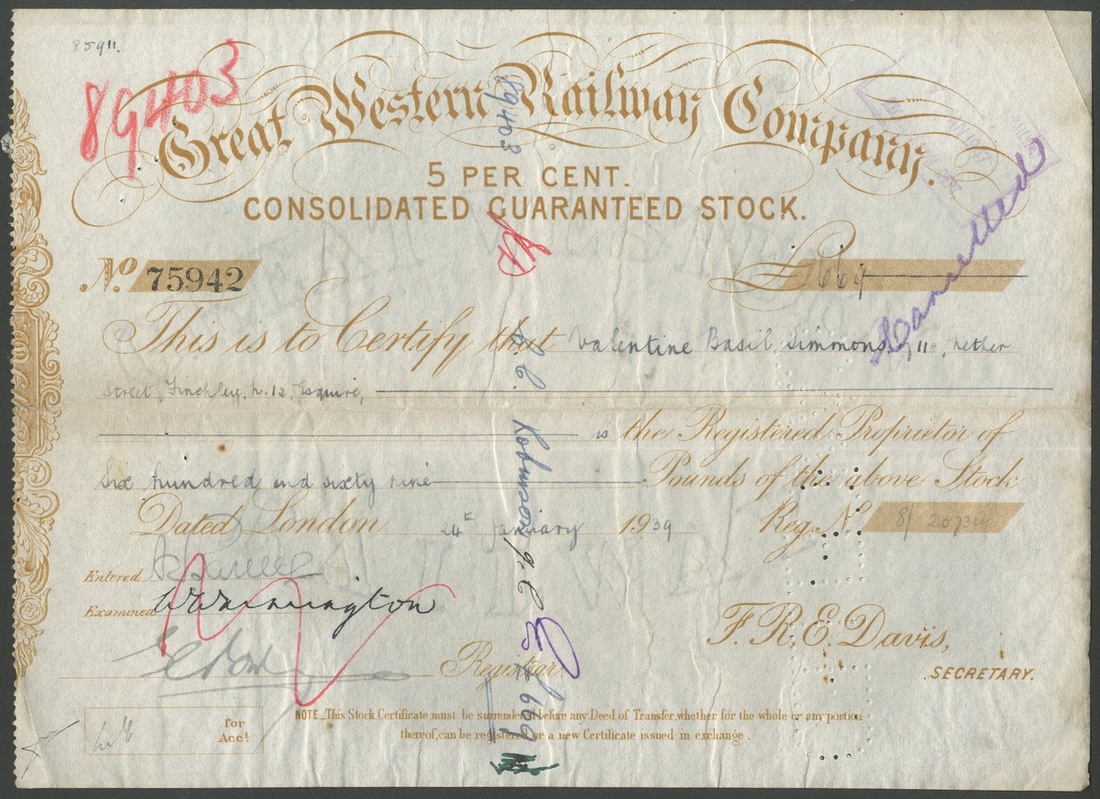 8591.
89403
Great Western Railway Company.
5 PER CENT.
CONSOLIDATED GUARANTEED STOCK.
89403
Cancelled
No. 75942
£ 669
This is to Certify that Valentine Basil Simmons, 11, Nether
Street, Finchley, N.12, Esquire,
is the Registered Proprietor of
Six hundred and sixty nine Pounds of the above Stock
Dated London 24th January 1939 Reg. No. 8/
Robinson
Entered
Examined W Warrington
Registrar
F. R. E. Davis,
SECRETARY.
for
Acct.
NOTE. This Stock Certificate must be surrendered before any Deed of Transfer, whether for the whole or any portion
thereof, can be registered or a new Certificate issued in exchange.